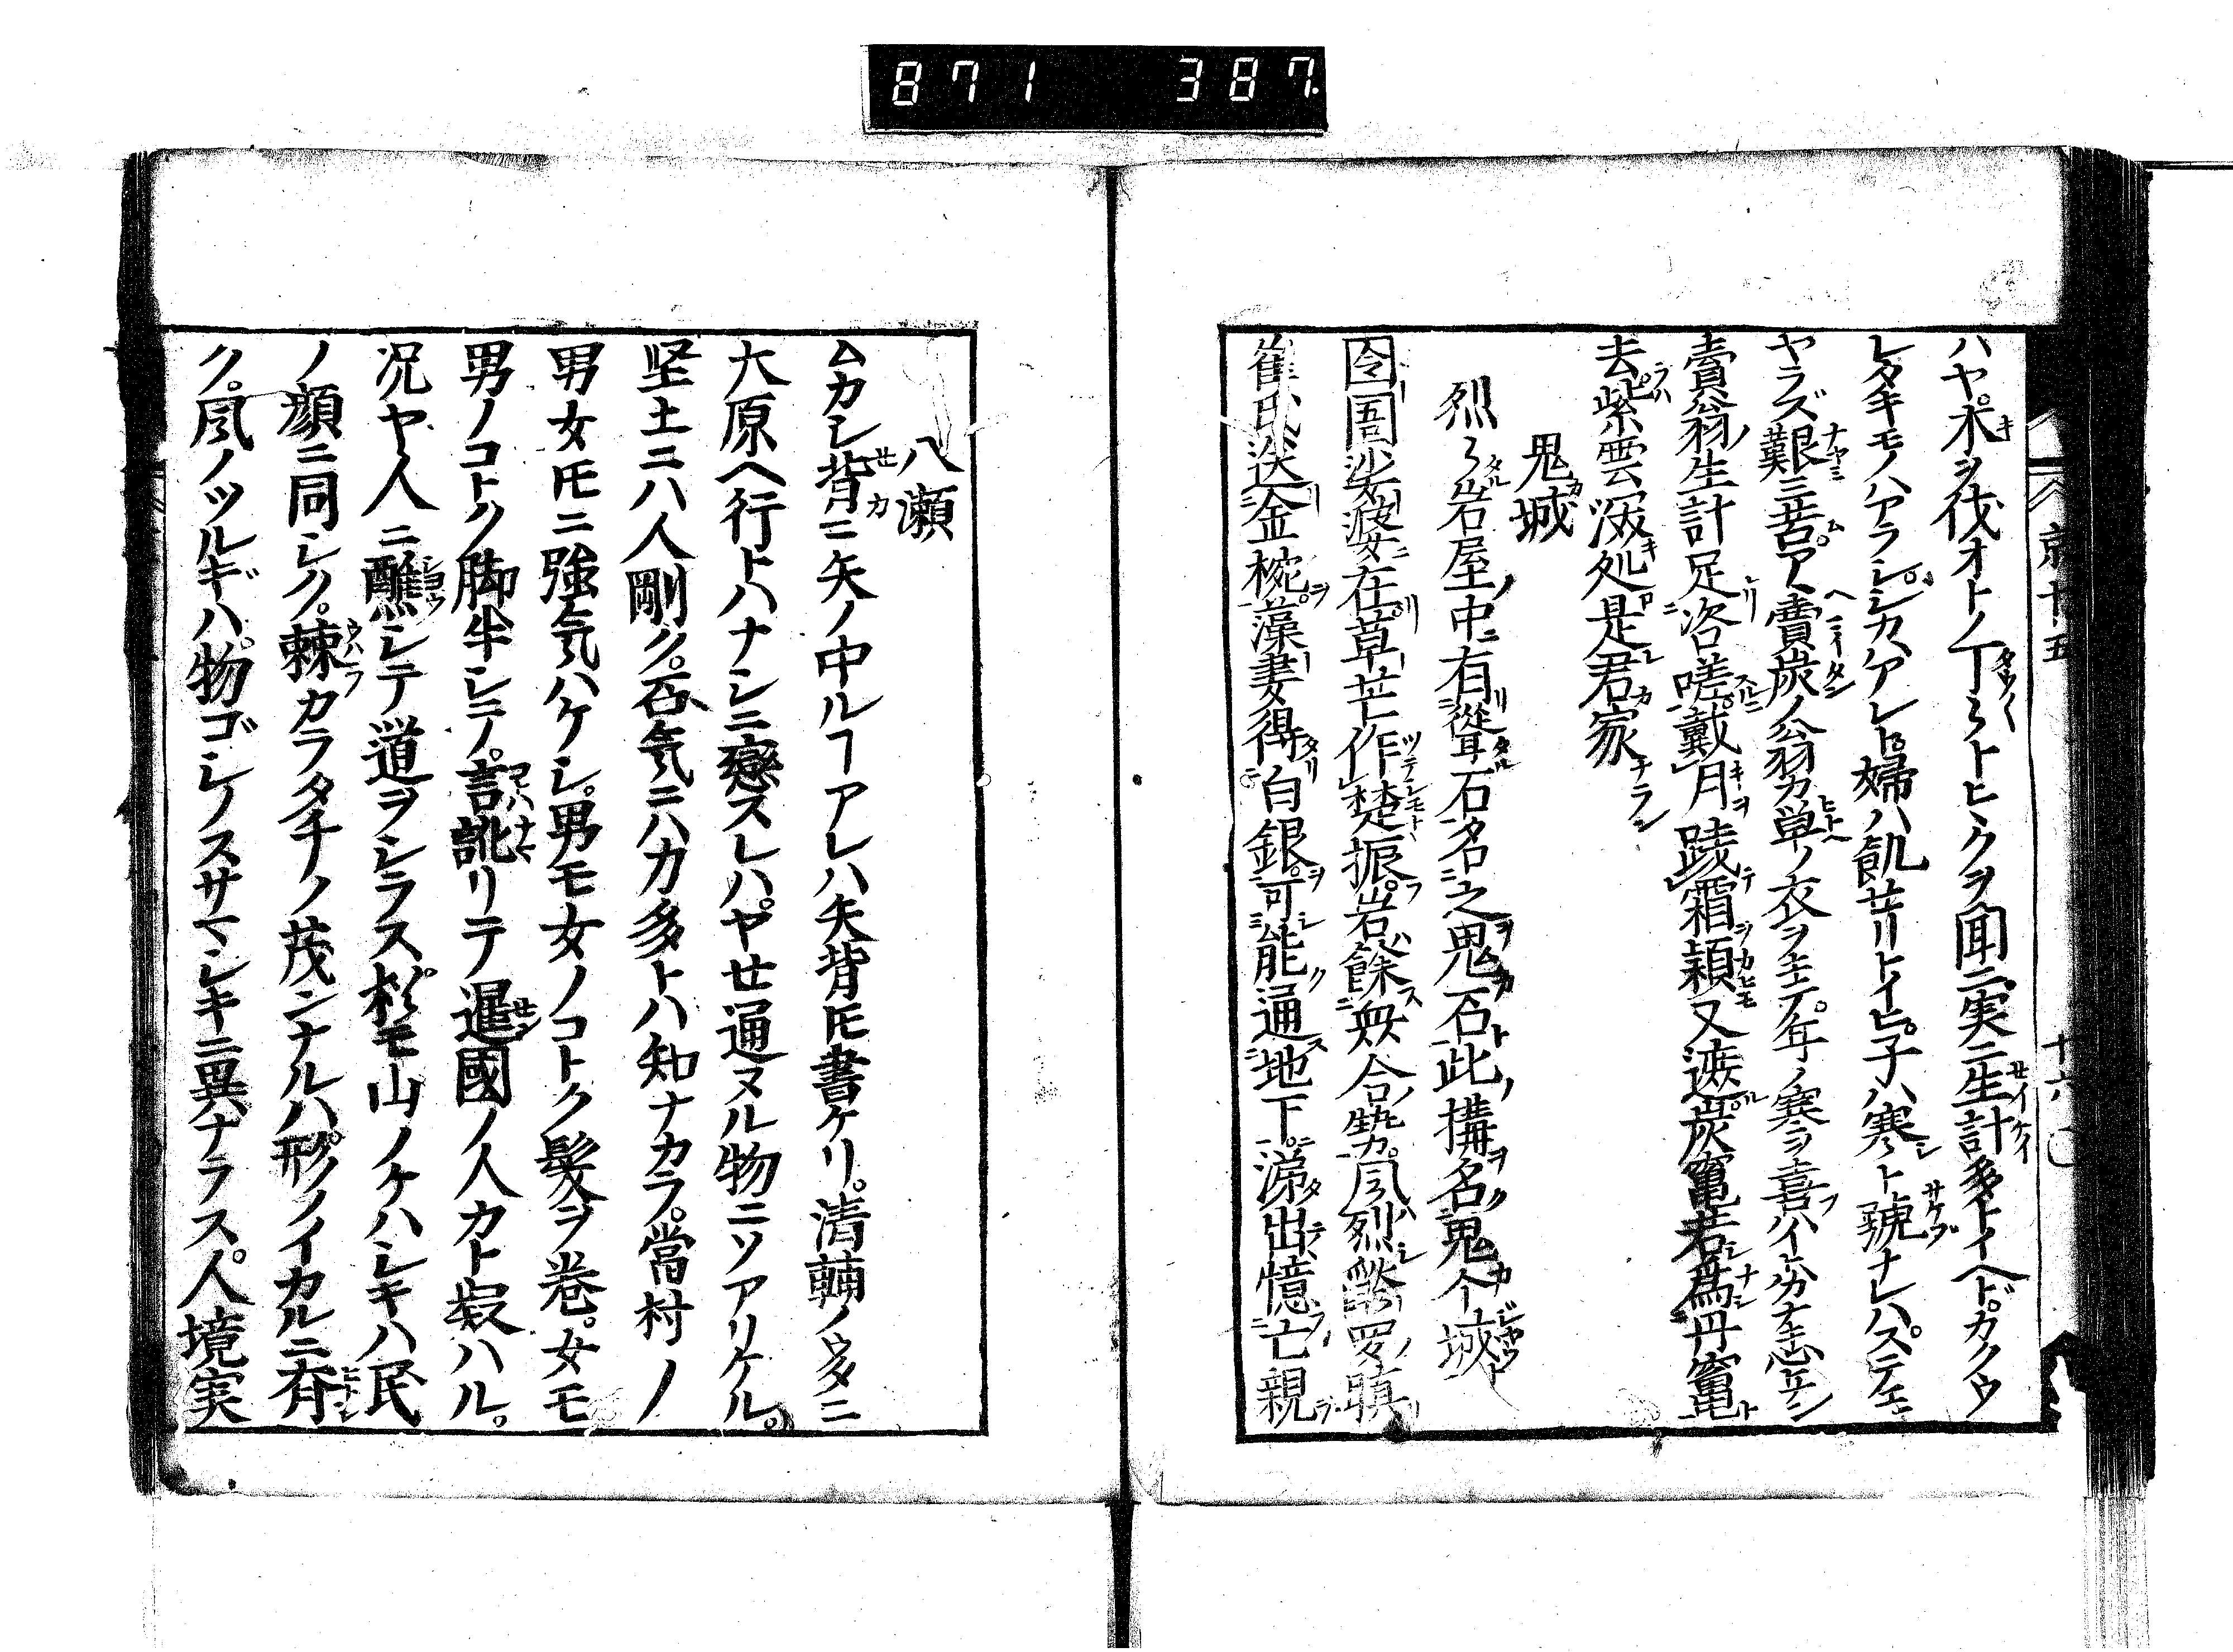 871 387
京十五 十六
ハヤ。木ヲ伐オトノ丁〻トヒヽクヲ聞ニ実ニ生計多トイヘド。カクウ
レタキモノハアラシ。シカハアレト。婦ハ飢ヌトイヒ。子ハ寒ト號ナレハ。ステニ
ヤラズ艱ミ苦ム。賣炭ノ翁カ単ノ衣ヲキテ。年ノ寒ヲ喜ハイト分ナキ志
賣翁生計足咨嗟戴月踐霜穎又遮炭竃若為丹竃
去紫雲深処是君家
鬼城
烈〻岩屋中有聳石名之鬼石此構名鬼个城
囹圄娑婆在草芒作楚振岩餘無合勢風烈
崔氏送金椀藻妻得白銀可能通地下涕出憶亡親
八瀬
ムカシ背ニ矢ノ中ルヿアレハ矢背𪜈書ケリ。清輔ノウタニ
大原ヘ行トハナシニ戀スレハ。ヤセ通ヌル物ニソアリケル。
堅土ニハ人剛ク。石氣ニハ力多トハ知ナカラ。當村ノ
男女𪜈ニ強気ハケシ。男モ女ノコトク髮ヲ巻。女モ
男ノコトク脚半シテ。言訛リテ暹國ノ人カト疑ハル。
況ヤ人ニ醮シテ道ヲシラス。杉モ山ノケハシキハ民
ノ顔ニ同シク。棘カラタチノ茂ンナルハ。形ノイカルニ有
ク。風ノツルギハ。物ゴシノスサマシキニ異ナラス。人境実